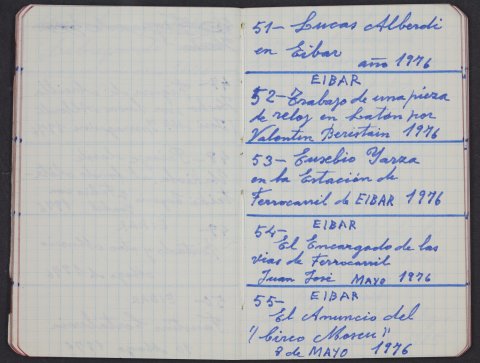 51- Lucas Alberdi
en Eibar
año 1976
EIBAR
52- Trabajo de una pieza
de reloj en Laton por
Valentin Beristain 1976
53- Eusebio Yarza
en la Estación de
Ferrocarril de EIBAR 1976
EIBAR
54-
El Encargado de las
vias de Ferrocarril
Juan José MAYO 1976
EIBAR
55-
El Anuncio del
"Circo Moscu"
8 de MAYO 1976